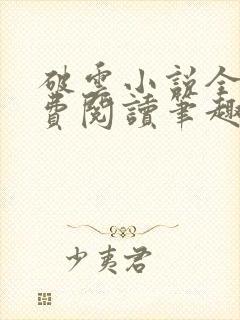 破雲小說全
費閱讀筆趣
少夷君